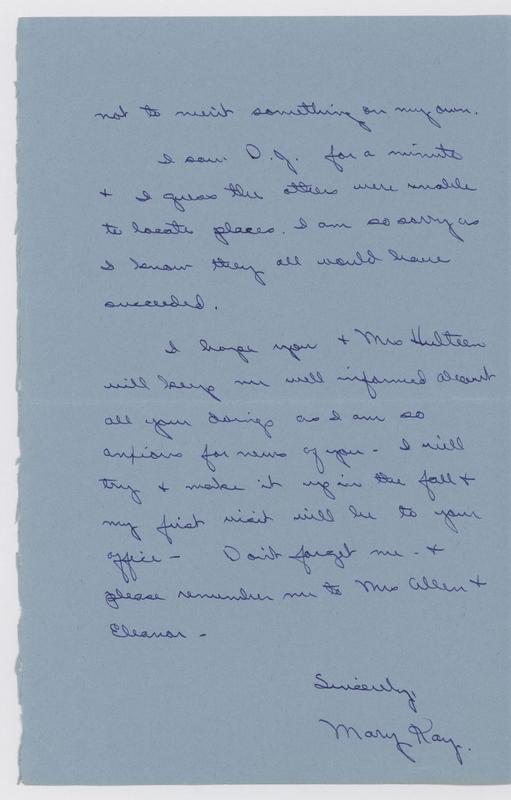 not to merit something on my own.
I saw D.J. for a minute
+ I guess the others were unable
to locate places. I am so sorry as
I know they all would have
succeeded.
I hope you + Mrs Hulteen
will keep me well informed about
all your doings as I am so
anxious for news of you - I will
try + make it up in the fall +
my first visit will be to your
office - Don't forget me - +
please remember me to Mrs Allen +
Eleanor -
Sincerely,
Mary Kay.